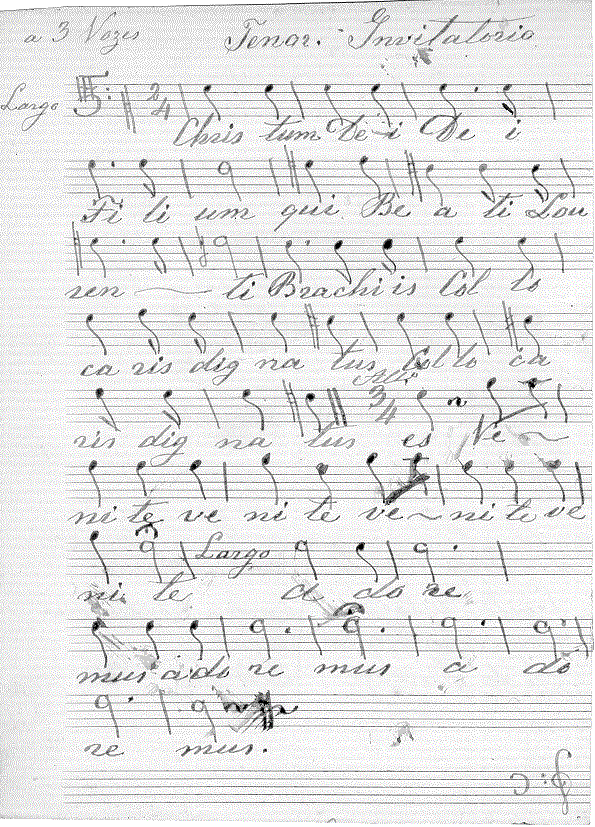 a 3 Vozes Tenor. Invitatorio
Largo 2/4
Chris tum De i De i
Fi li um qui Be a ti Lou
ren ti Brachi is Col lo
ca ris dig na tus Col lo ca
3/4
ris dig na tus es Ve
ni te ve ni te ve ni te ve
Largo
ni te a do re
mus a do re mus a do
re mus.